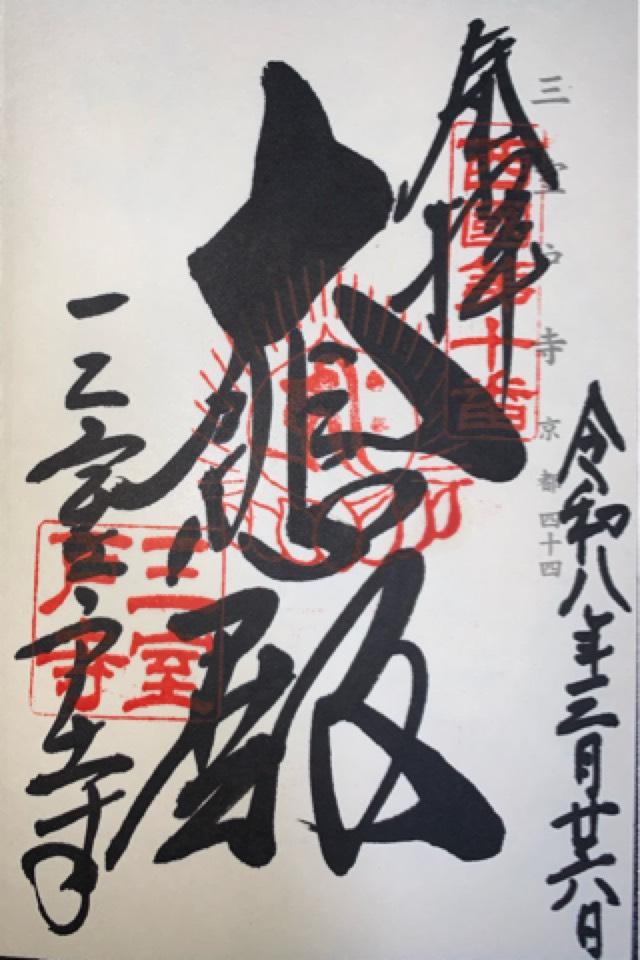 令和八年三月廿六日
三室戸寺 京都 四十四
奉拝
西國第十番
大悲殿
三室戸寺
三室戸寺